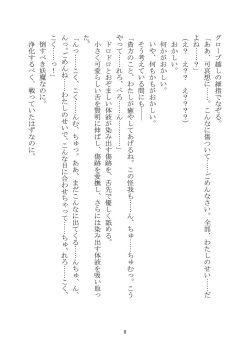 グローブ越しの細指でなぞる。
「ああ、可哀想に……。こんなに傷ついて……ごめんなさい。全部、わたしのせい……だ
よね……？」
(え？　え？？　え？？？？)
おかしい。
何かがおかしい。
いや、何もかもがおかしい。
そう考えている間にも――
「貴方のこと、わたしが癒やしてあげるね。この怪我も……ん、ちゅ……ちゅむっ。こう
やって……れろ、ぺろ……ん……」
ドロドロとおぞましい体液が染み出す傷跡を、舌先で優しく舐める。
小さく可愛らしい舌を懸命に伸ばし、傷跡を愛撫し、さらには染み出す体液を吸い取っ
た。
「んっ……こく、こく……んむ、ちゅっ。ああ、まだこんなに出てくる……んちゅ、ん、
んっ。ごめんね……わたしのせいで、こんな目に合わせちゃって……ちゅ、れろ……こく、
こく……」
倒すべき妖魔なのに。
浄化するべく、戦っていたはずなのに。
8